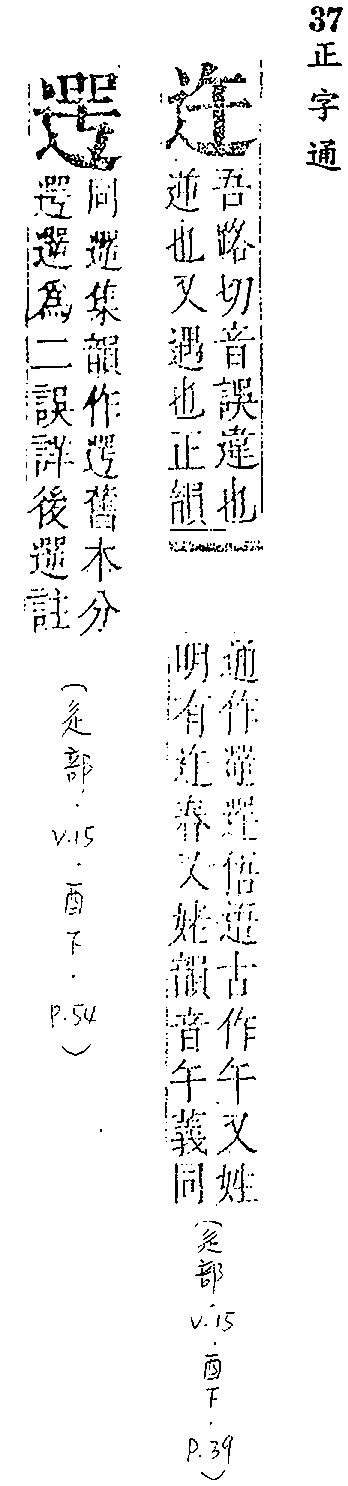 37 正字通
迕
吾路切音誤違也
逆也又遇也正韻
通作悟遻古作午又姓
明有迕春又姥韻音午義同
(辵部・v.15・酉下・p.39)
遌
同遻集韻作遌舊本分
遌遻爲二誤詳後遻註
(辵部・v.15・酉下・p.54)